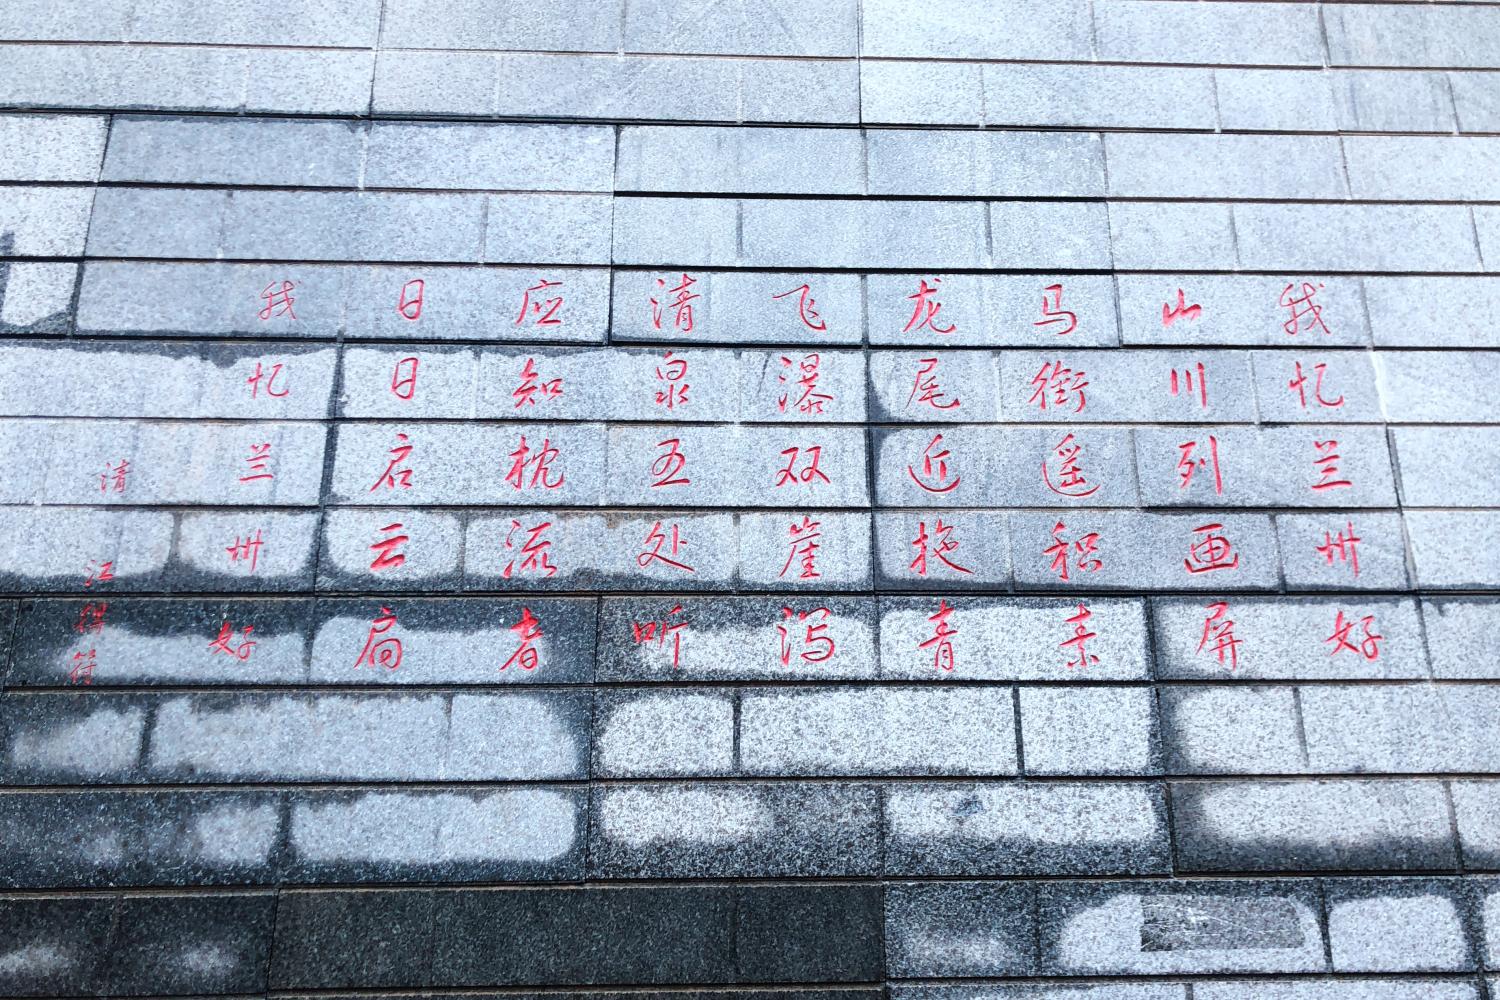 我忆兰州好
山川列画屏
马衔遥积素
龙尾近拖青
飞瀑双崖泻
清泉五处听
应知枕流者
日日启云扃
我忆兰州好
清 江得符